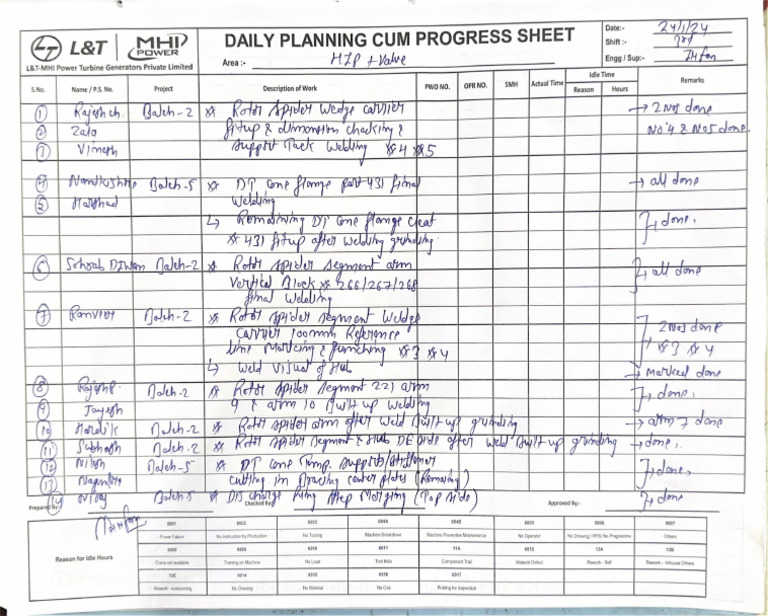 L&T MHI POWER
L&T-MHI Power Turbine Generators Private Limited
DAILY PLANNING CUM PROGRESS SHEET
Area :- HIP + Valve
Date:- 24/1/24
Shift :- 3rd
Engg / Sup:- Irfan
S.No. Name / P.S. No. Project Description of Work PWO NO. OPR NO. SMH Actual Time Idle Time Reason Hours Remarks
1 Rajesh ch. Batch-2 Rotor Spider Wedge carrier → 2 Nos done
2 Zala fitup & dimension checking & No 4 & No 5 done
3 Vinesh Support Tack Welding 4 5
4 Nandkishore Batch-5 DT cone flange part 431 final → all done
5 Harshad Welding
↳ Remaining DT cone flange cleat done.
431 fitup after welding grinding.
6 Sohrab Diwan Batch-2 Rotor Spider Segment arm all done
Vertical Block 266/267/268
final Welding
7 Ranvier Batch-2 Rotor Spider Segment Wedge 2 Nos done
carrier 100mm Reference 3 4
line Marking & punching 3 4
↳ Weld Visual of Hub → Marked done
8 Rajesh Batch-2 Rotor Spider Segment 221 arm done.
9 Jayesh 9 & arm 10 Built up Welding
10 Hardik Batch-2 Rotor Spider arm after weld Built up grinding → arm 7 done
11 Subhash Batch-2 Rotor Spider Segment & Hub DE side after weld Built up grinding → done.
12 Nilesh Batch-5 DT cone Temp. Support/Stiffener done.
13 Nagendra cutting in Bracing center plates (Remaining)
14 Batch-5 Discharge Ring Step Merging (Top side) done
Prepared By:- Checked By:- Approved By:-
Reason for Idle Hours
0001 0002 0003 004A 004B 0005 0006 0007
Power Failure No Instruction by Production No Tooling Machine Breakdown Machine Preventive Maintenance No Operator No Drawing / PPS/ No Programme Others
0008 0009 0010 0011 11A 0012 13A 13B
Crane not available Training on Machine No Load Tool trials Component Trial Material Defect Rework - Self Rework - Inhouse Others
13C 0014 0015 0016 0017
Rework - outsourcing No Cleaning No Material No Gas Waiting for Inspection